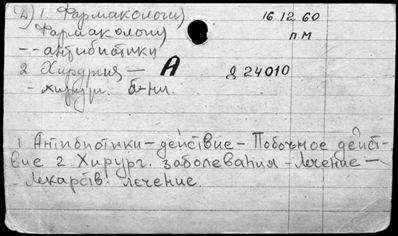 Д) 1 Фармакологи) 16.12.60
Фармакологи) пм
-- антибиотики
2 Хирургия — А Д 24010
- хирург. б-ни.
1 Антибиотики - действие - Побочное дейст-
вие 2 Хирург. заболевания - лечение -
- Лекарств. лечение.